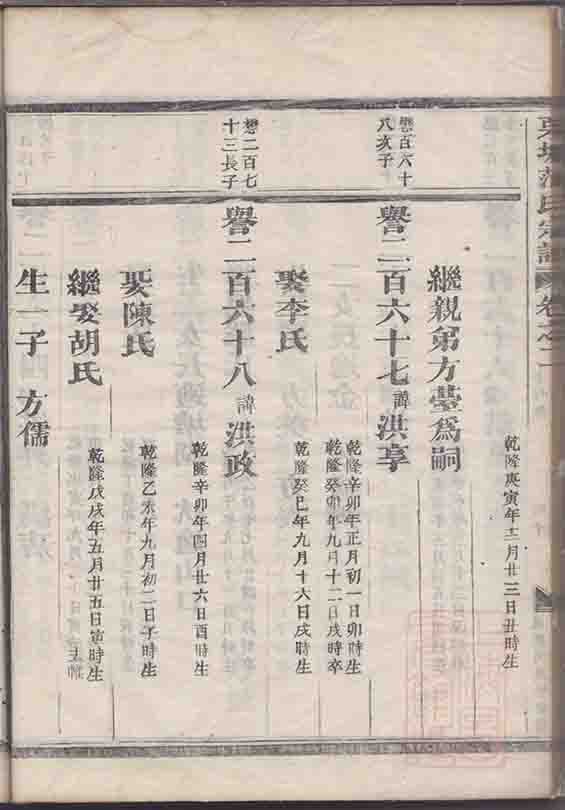 氏宗譜 卷之二
乾隆庚寅年十二月廿三日丑時生
繼親弟方臺爲嗣
懋百六十
八次子
譽二百六十七 諱 洪享
乾隆辛卯年正月初一日卯時生
乾隆癸卯年九月十二日戌時卒
娶李氏
乾隆癸巳年九月十六日戌時生
懋二百七
十三長子
譽二百六十八 諱 洪政
乾隆辛卯年四月廿六日酉時生
娶陳氏
乾隆乙未年九月初二日子時生
繼娶胡氏
乾隆戊戌年五月廿五日寅時生
生一子 方儒